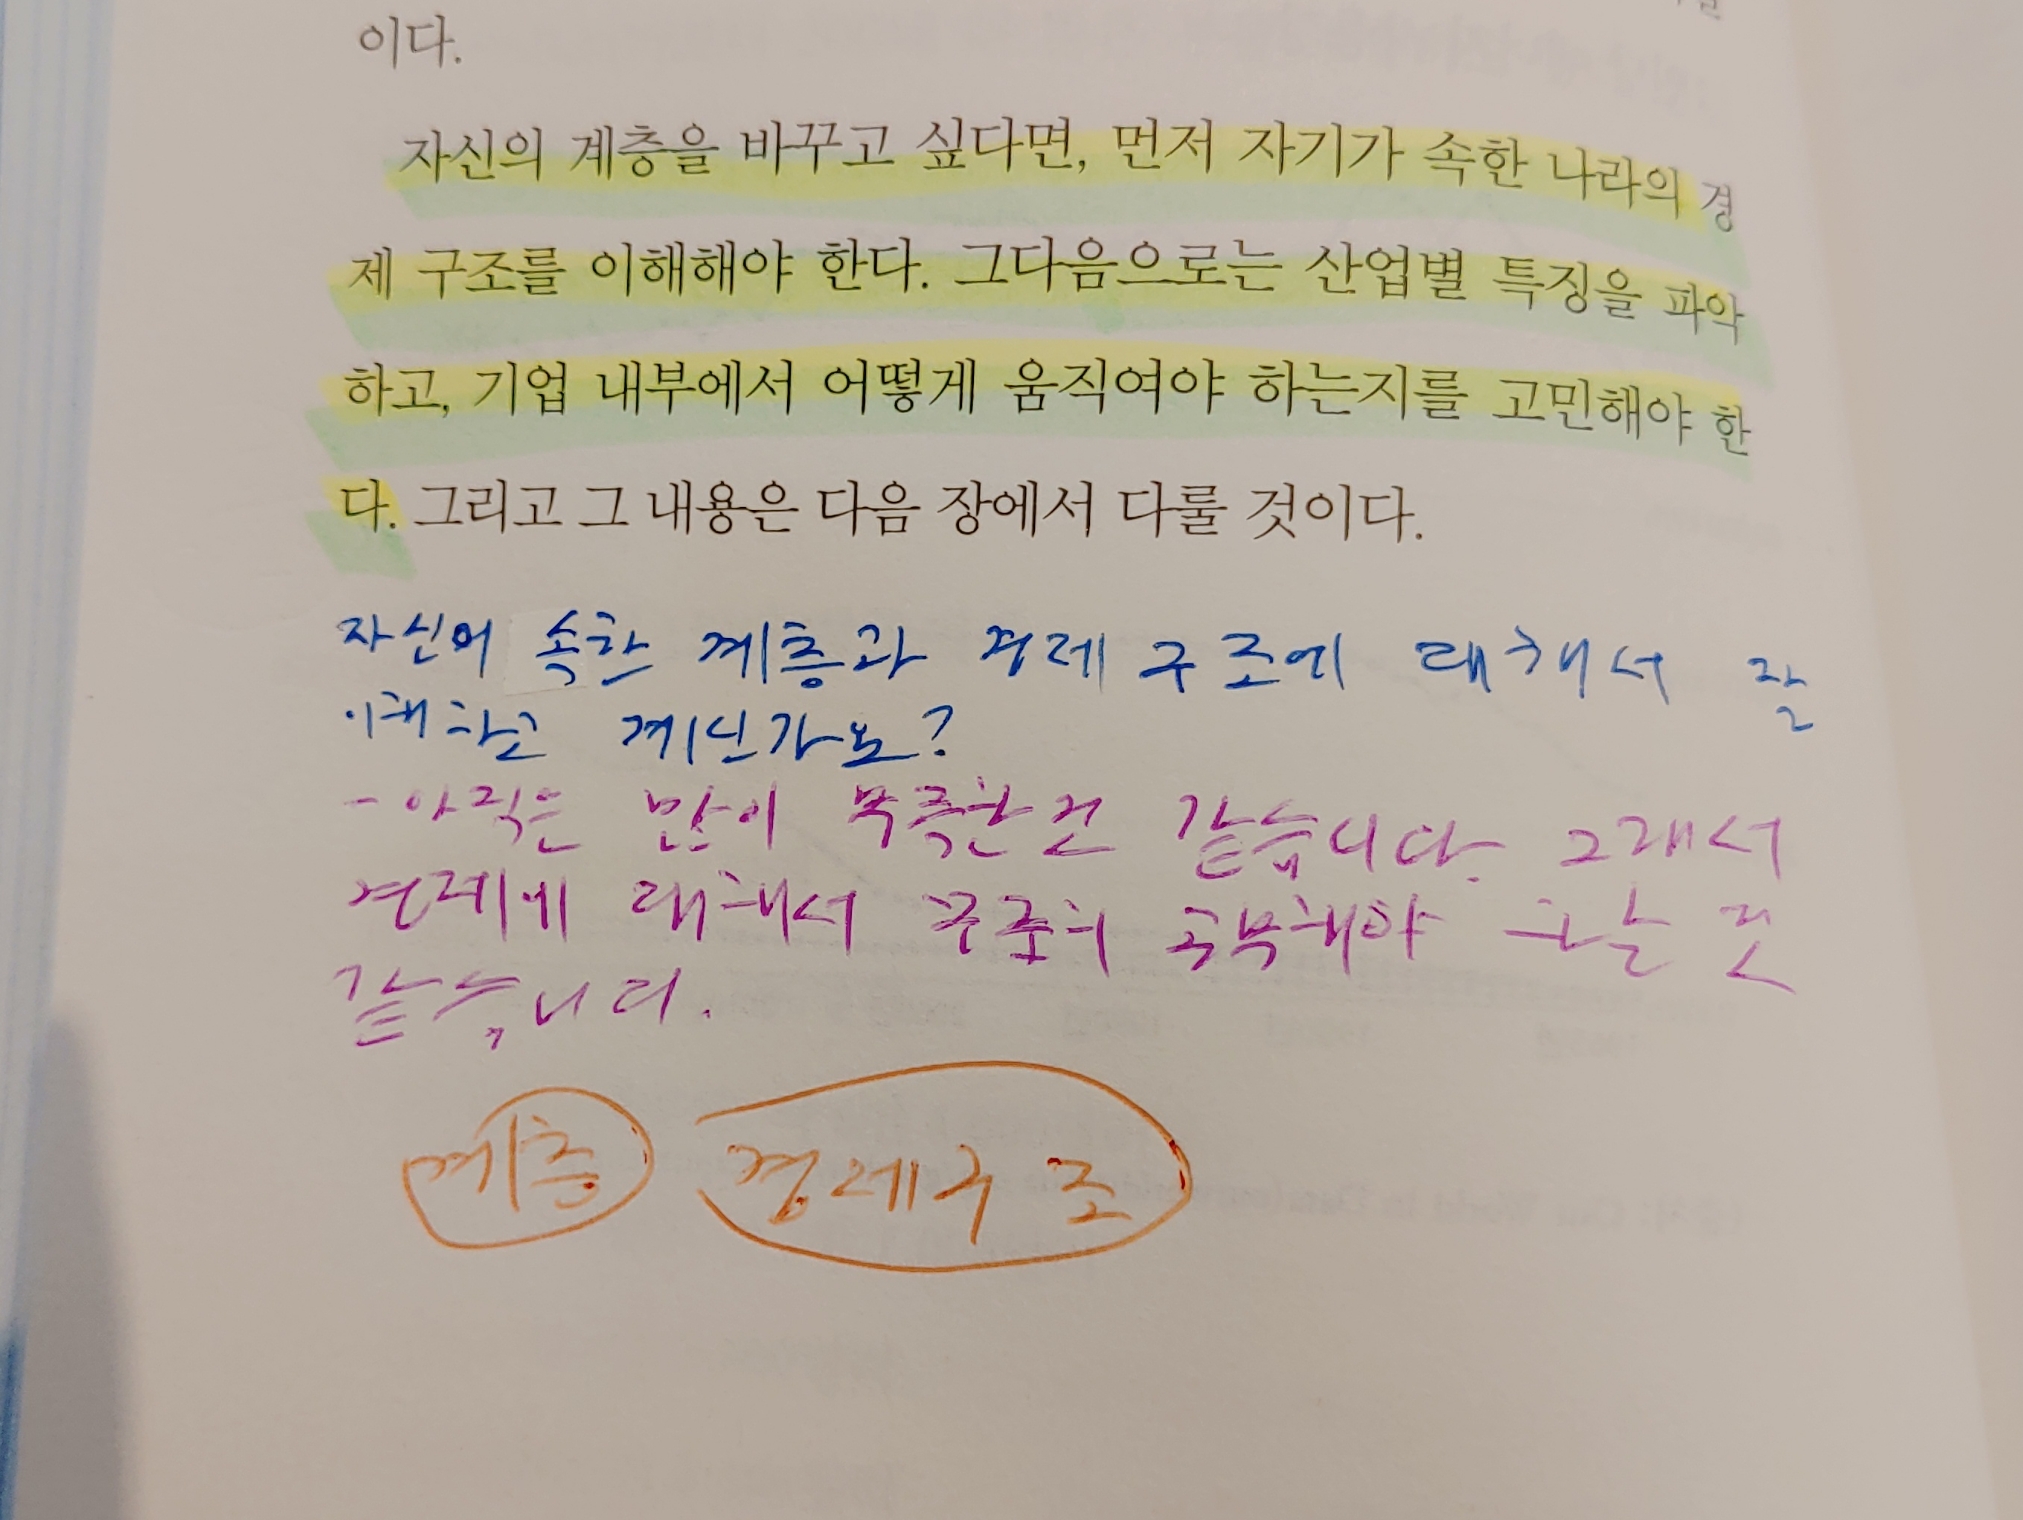 이다.
자신의 계층을 바꾸고 싶다면, 먼저 자기가 속한 나라의 경
제 구조를 이해해야 한다. 그다음으로는 산업별 특징을 파악
하고, 기업 내부에서 어떻게 움직여야 하는지를 고민해야 한
다. 그리고 그 내용은 다음 장에서 다룰 것이다.
자신이 속한 계층과 경제 구조에 대해서 잘
이해하고 계신가요?
- 아직은 많이 부족한 것 같습니다. 그래서
경제에 대해서 꾸준히 공부해야 하는 것
같습니다.
계층 경제구조